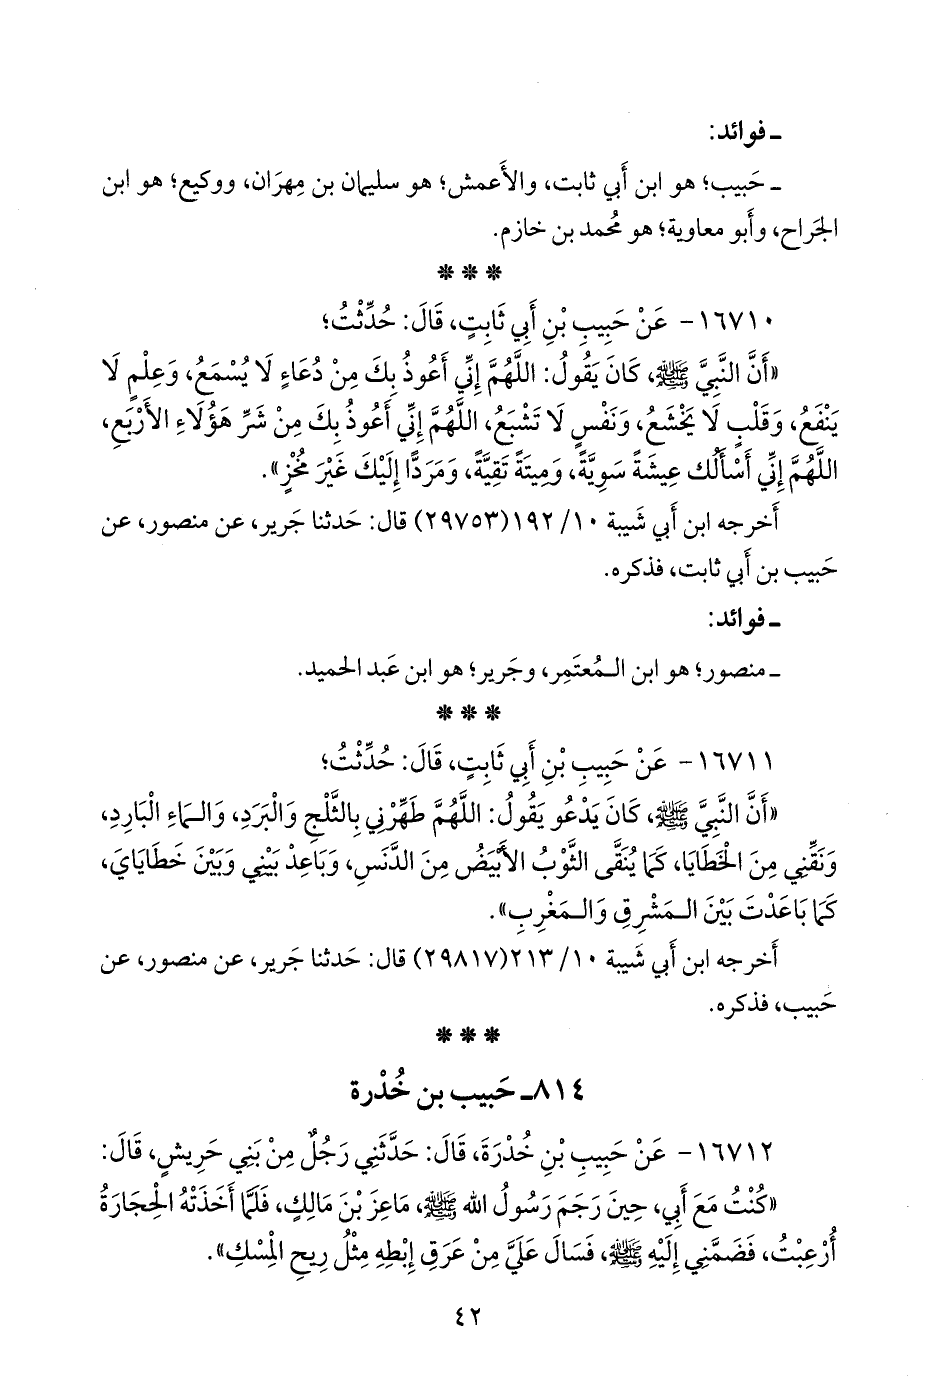 ـ فوائد:
ـ حَبيب؛ هو ابن أَبي ثابت، والأَعمش؛ هو سليمان بن مِهرَان، ووكيع؛ هو ابن
الجَراح، وأَبو معاوية؛ هو مُحمد بن خازم.
* * *
١٦٧١٠- عَنْ حَبِيبِ بْنِ أَبِي ثَابِتٍ، قَالَ: حُدِّثْتُ؛
«أَنَّ النَّبِيَّ ﷺ، كَانَ يَقُولُ: اللَّهُمَّ إِنِّي أَعُوذُ بِكَ مِنْ دُعَاءٍ لَا يُسْمَعُ، وَعِلْمٍ لَا
يَنْفَعُ، وَقَلْبٍ لَا يَخْشَعُ، وَنَفْسٍ لَا تَشْبَعُ، اللَّهُمَّ إِنِّي أَعُوذُ بِكَ مِنْ شَرِّ هَؤُلَاءِ الأَرْبَعِ،
اللَّهُمَّ إِنِّي أَسْأَلُكَ عِيشَةً سَوِيَّةً، وَمِيتَةً تَقِيَّةً، وَمَرَدًّا إِلَيْكَ غَيْرَ مُخْزٍ».
أَخرجه ابن أَبي شَيبة ١٠/ ١٩٢(٢٩٧٥٣) قال: حَدثنا جَرير، عن منصور، عن
حَبيب بن أَبي ثابت، فذكره.
ـ فوائد:
ـ منصور؛ هو ابن الـمُعتَمِر، وجَرير؛ هو ابن عَبد الحَميد.
* * *
١٦٧١١- عَنْ حَبِيبِ بْنِ أَبِي ثَابِتٍ، قَالَ: حُدِّثْتُ؛
«أَنَّ النَّبِيَّ ﷺ، كَانَ يَدْعُو يَقُولُ: اللَّهُمَّ طَهِّرْنِي بِالثَّلْجِ وَالْبَرَدِ، وَالـمَاءِ الْبَارِدِ،
وَنَقِّنِي مِنَ الْخَطَايَا، كَمَا يُنَقَّى الثَّوْبُ الأَبْيَضُ مِنَ الدَّنَسِ، وَبَاعِدْ بَيْنِي وَبَيْنَ خَطَايَايَ،
كَمَا بَاعَدْتَ بَيْنَ الـمَشْرِقِ وَالـمَغْرِبِ».
أَخرجه ابن أَبي شَيبة ١٠/ ٢١٣(٢٩٨١٧) قال: حَدثنا جَرير، عن منصور، عن
حَبيب، فذكره.
* * *
٨١٤ـ حَبيب بن خُدْرة
١٦٧١٢- عَنْ حَبِيبِ بْنِ خُدْرَةَ، قَالَ: حَدَّثَنِي رَجُلٌ مِنْ بَنِي حَرِيشٍ، قَالَ:
«كُنْتُ مَعَ أَبِي، حِينَ رَجَمَ رَسُولُ الله ﷺ، مَاعِزَ بْنَ مَالِكٍ، فَلَمَّا أَخَذَتْهُ الْحِجَارَةُ
أُرْعِبْتُ، فَضَمَّنِي إِلَيْهِ ﷺ، فَسَالَ عَلَيَّ مِنْ عَرَقِ إِبْطِهِ مِثْلُ رِيحِ الْمِسْكِ».
٤٢